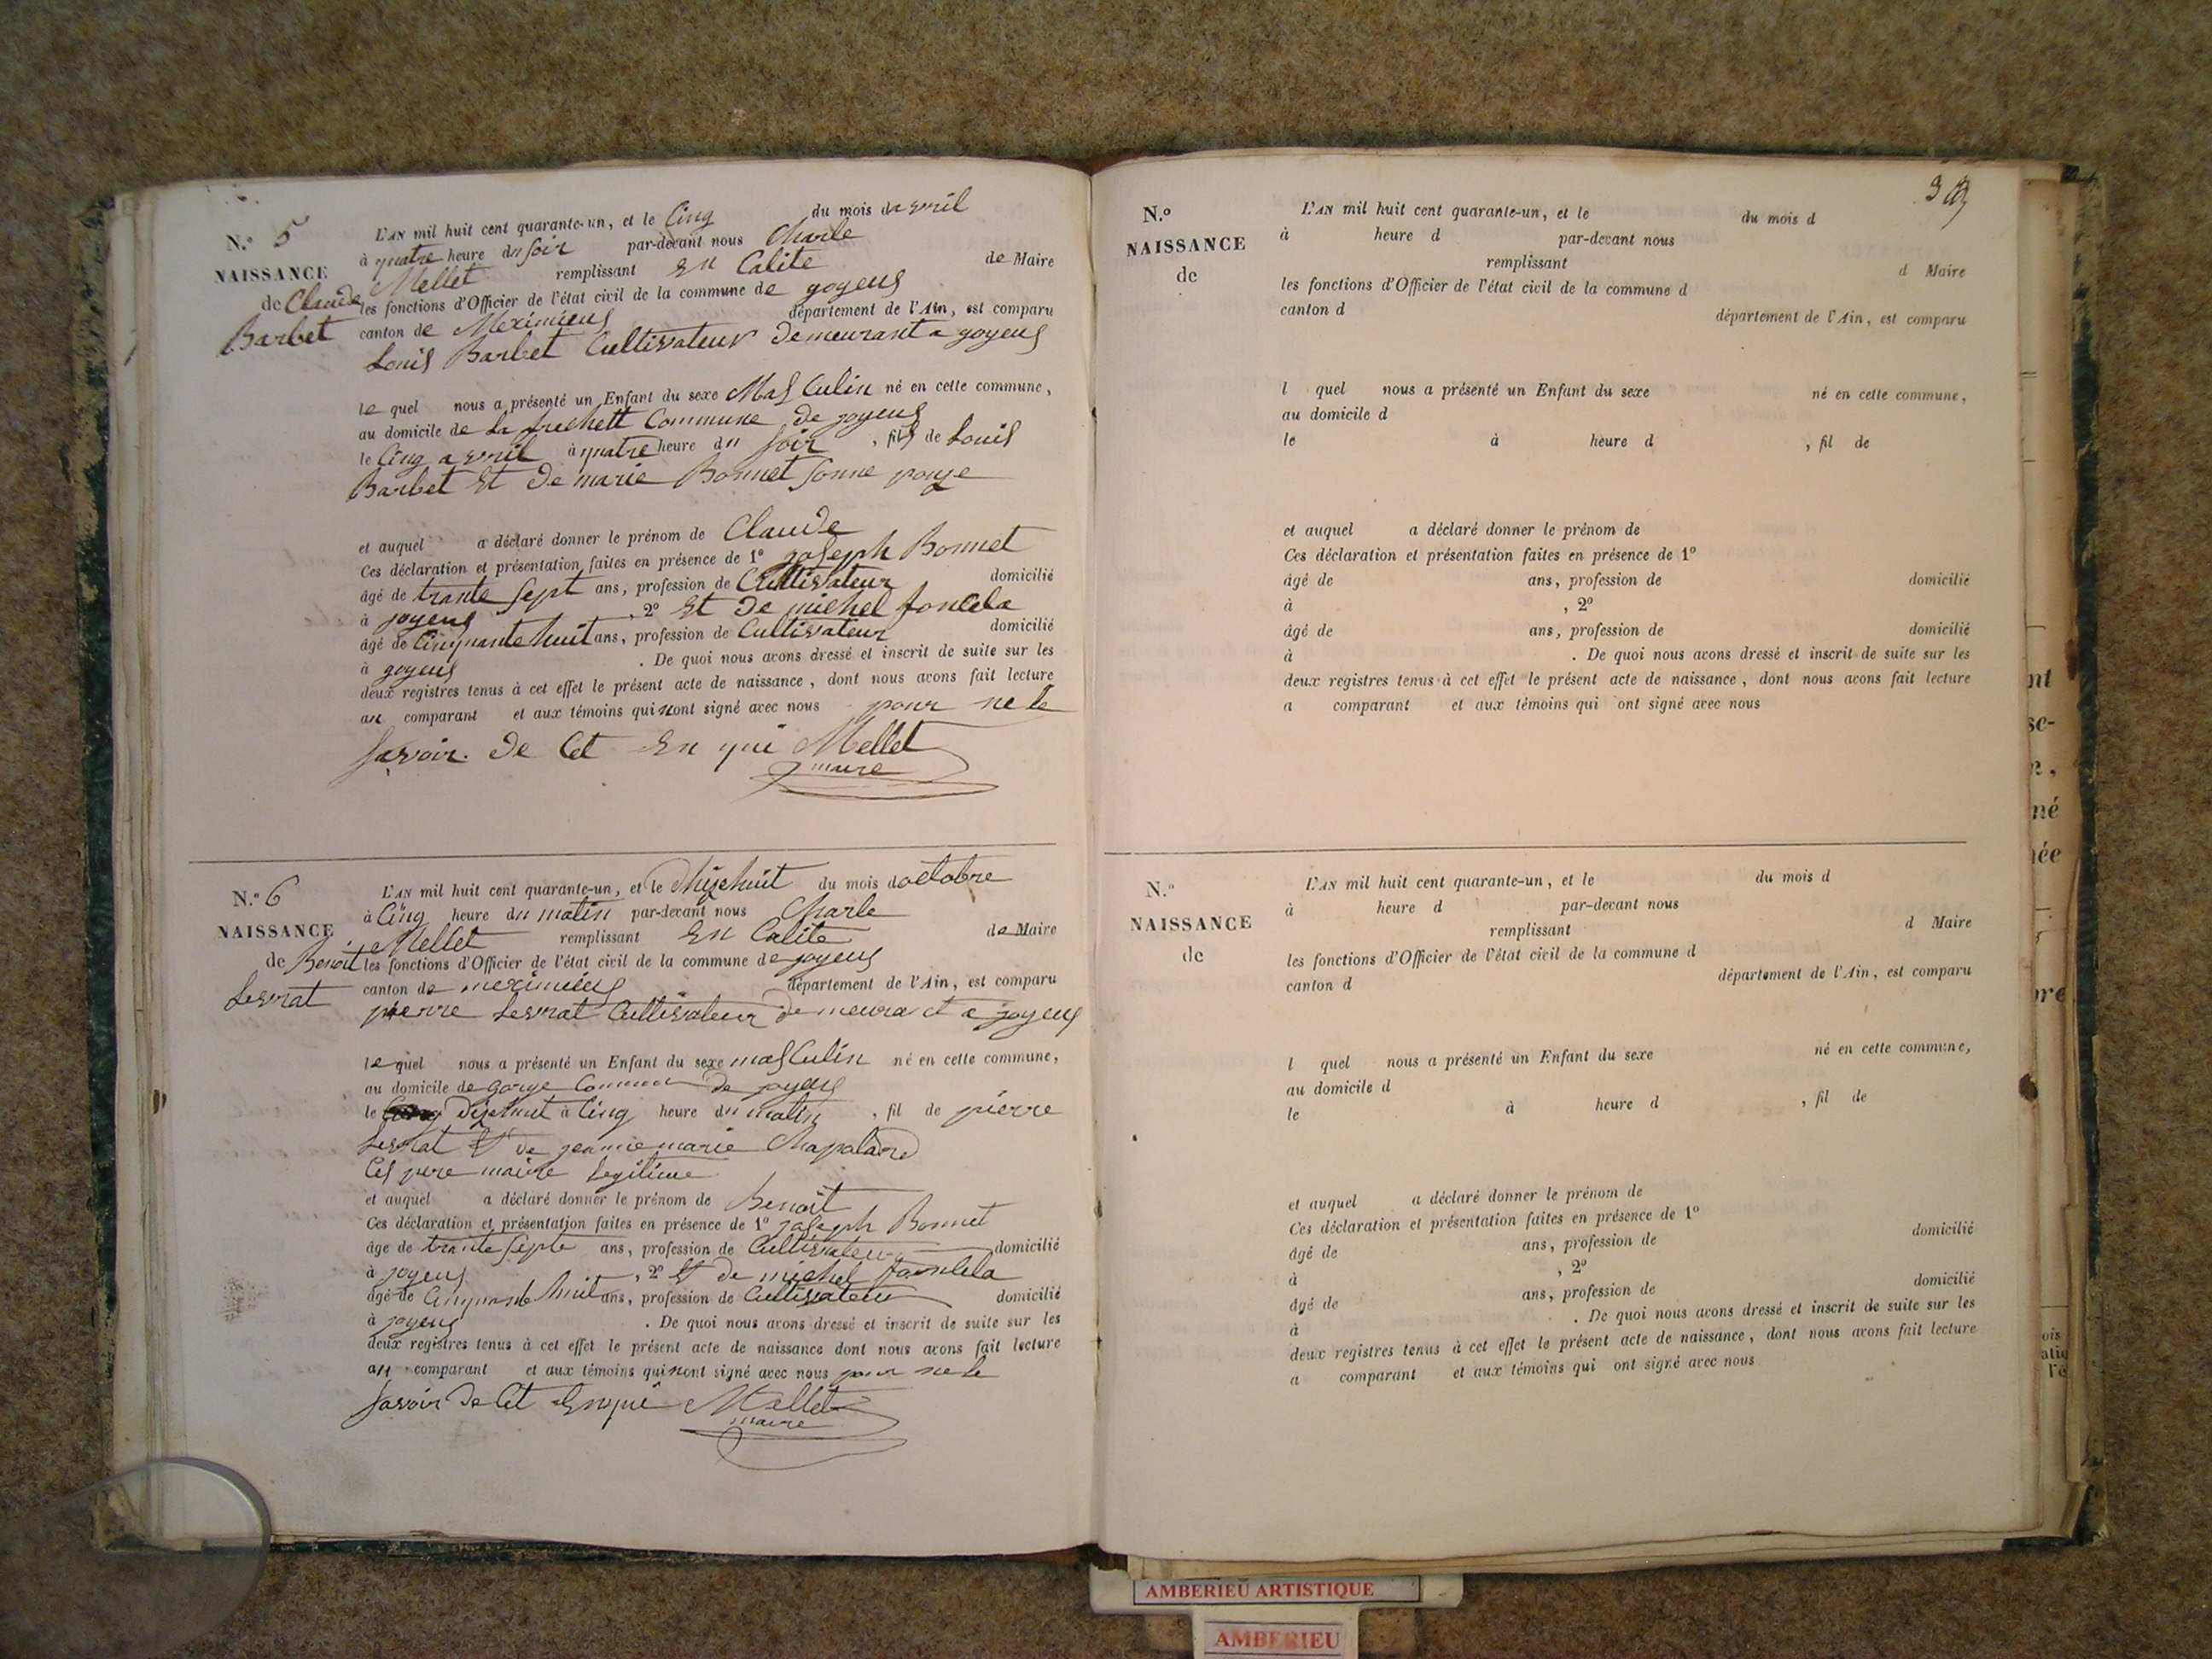 N.° 5
NAISSANCE
de Claude
Barbet
L'AN mil huit cent quarante-un, et le Cinq du mois da avril
à quatre heure du soir par-devant nous Charle
Mellet remplissant En Calite de Maire
les fonctions d'Officier de l'état civil de la commune de goyeus
canton de Meximieus département de l'Ain, est comparu
Louis Barbet Cultivateur Demeurant a goyeus
le quel nous a présenté un Enfant du sexe Mas Culin né en cette commune,
au domicile de La frechett Commune De joyeus
le Cinq avril à quatre heure du soir, fils de Louis
Barbet Et De marie Bonnet sonne
et auquel a déclaré donner le prénom de Claude
Ces déclaration et présentation faites en présence de 1° joseph Bonnet
âgé de trante sept ans, profession de Cultivateur domicilié
à joyeus, 2° Et De michel
âgé de Cinquante huit ans, profession de Cultivateur domicilié
à goyeus. De quoi nous avons dressé et inscrit de suite sur les
deux registres tenus à cet effet le présent acte de naissance, dont nous avons fait lecture
au comparant et aux témoins qui nont signé avec nous pour ne le
savoir. De Cet En qui Mellet
maire
N.° 6
NAISSANCE
de Benoit
Lesvrat
L'AN mil huit cent quarante-un, et le Dhixehuit du mois doctobre
à Cinq heure du matin par-devant nous Charle
Mellet remplissant En Calite de Maire
les fonctions d'Officier de l'état civil de la commune de joyeus
canton de meximieus département de l'Ain, est comparu
pierre Lesvrat Cultivateur De meurant a joyeus
le quel nous a présenté un Enfant du sexe mas Culin né en cette commune,
au domicile de gorge Commune De joyeus
le Dixehuit à Cinq heure du matin, fil de pierre
Lesvrat Et De jeannie marie Chapaland
Ces pere maire Legitime
et auquel a déclaré donner le prénom de Benoit
Ces déclaration et présentation faites en présence de 1° joseph Bonnet
âgé de trante septe ans, profession de Cultivateur domicilié
à joyeus, 2° Et De michel
âgé de Cinquante huit ans, profession de Cultivateur domicilié
à joyeus. De quoi nous avons dressé et inscrit de suite sur les
deux registres tenus à cet effet le présent acte de naissance dont nous avons fait lecture
au comparant et aux témoins qui nont signé avec nous pour ne le
savoir De Cet Enqui Mellet
maire
N.°
NAISSANCE
de
L'AN mil huit cent quarante-un, et le du mois d
à heure d par-devant nous
remplissant d Maire
les fonctions d'Officier de l'état civil de la commune d
canton d département de l'Ain, est comparu
l quel nous a présenté un Enfant du sexe né en cette commune,
au domicile d
le à heure d, fil de
et auquel a déclaré donner le prénom de
Ces déclaration et présentation faites en présence de 1°
âgé de ans, profession de domicilié
à, 2°
âgé de ans, profession de domicilié
à. De quoi nous avons dressé et inscrit de suite sur les
deux registres tenus à cet effet le présent acte de naissance, dont nous avons fait lecture
a comparant et aux témoins qui ont signé avec nous
N.°
NAISSANCE
de
L'AN mil huit cent quarante-un, et le du mois d
à heure d par-devant nous
remplissant d Maire
les fonctions d'Officier de l'état civil de la commune d
canton d département de l'Ain, est comparu
l quel nous a présenté un Enfant du sexe né en cette commune,
au domicile d
le à heure d, fil de
et auquel a déclaré donner le prénom de
Ces déclaration et présentation faites en présence de 1°
âgé de ans, profession de domicilié
à, 2°
âgé de ans, profession de domicilié
à. De quoi nous avons dressé et inscrit de suite sur les
deux registres tenus à cet effet le présent acte de naissance, dont nous avons fait lecture
a comparant et aux témoins qui ont signé avec nous
AMBERIEU ARTISTIQUE
AMBERIEU